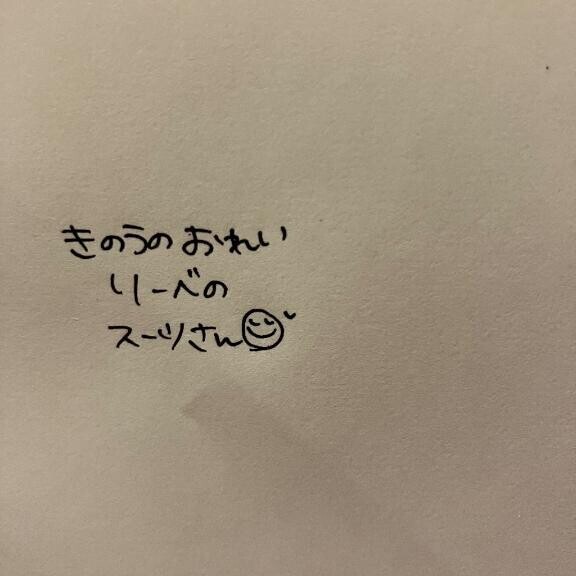 きのうのおれい
リーベの
スーツさん